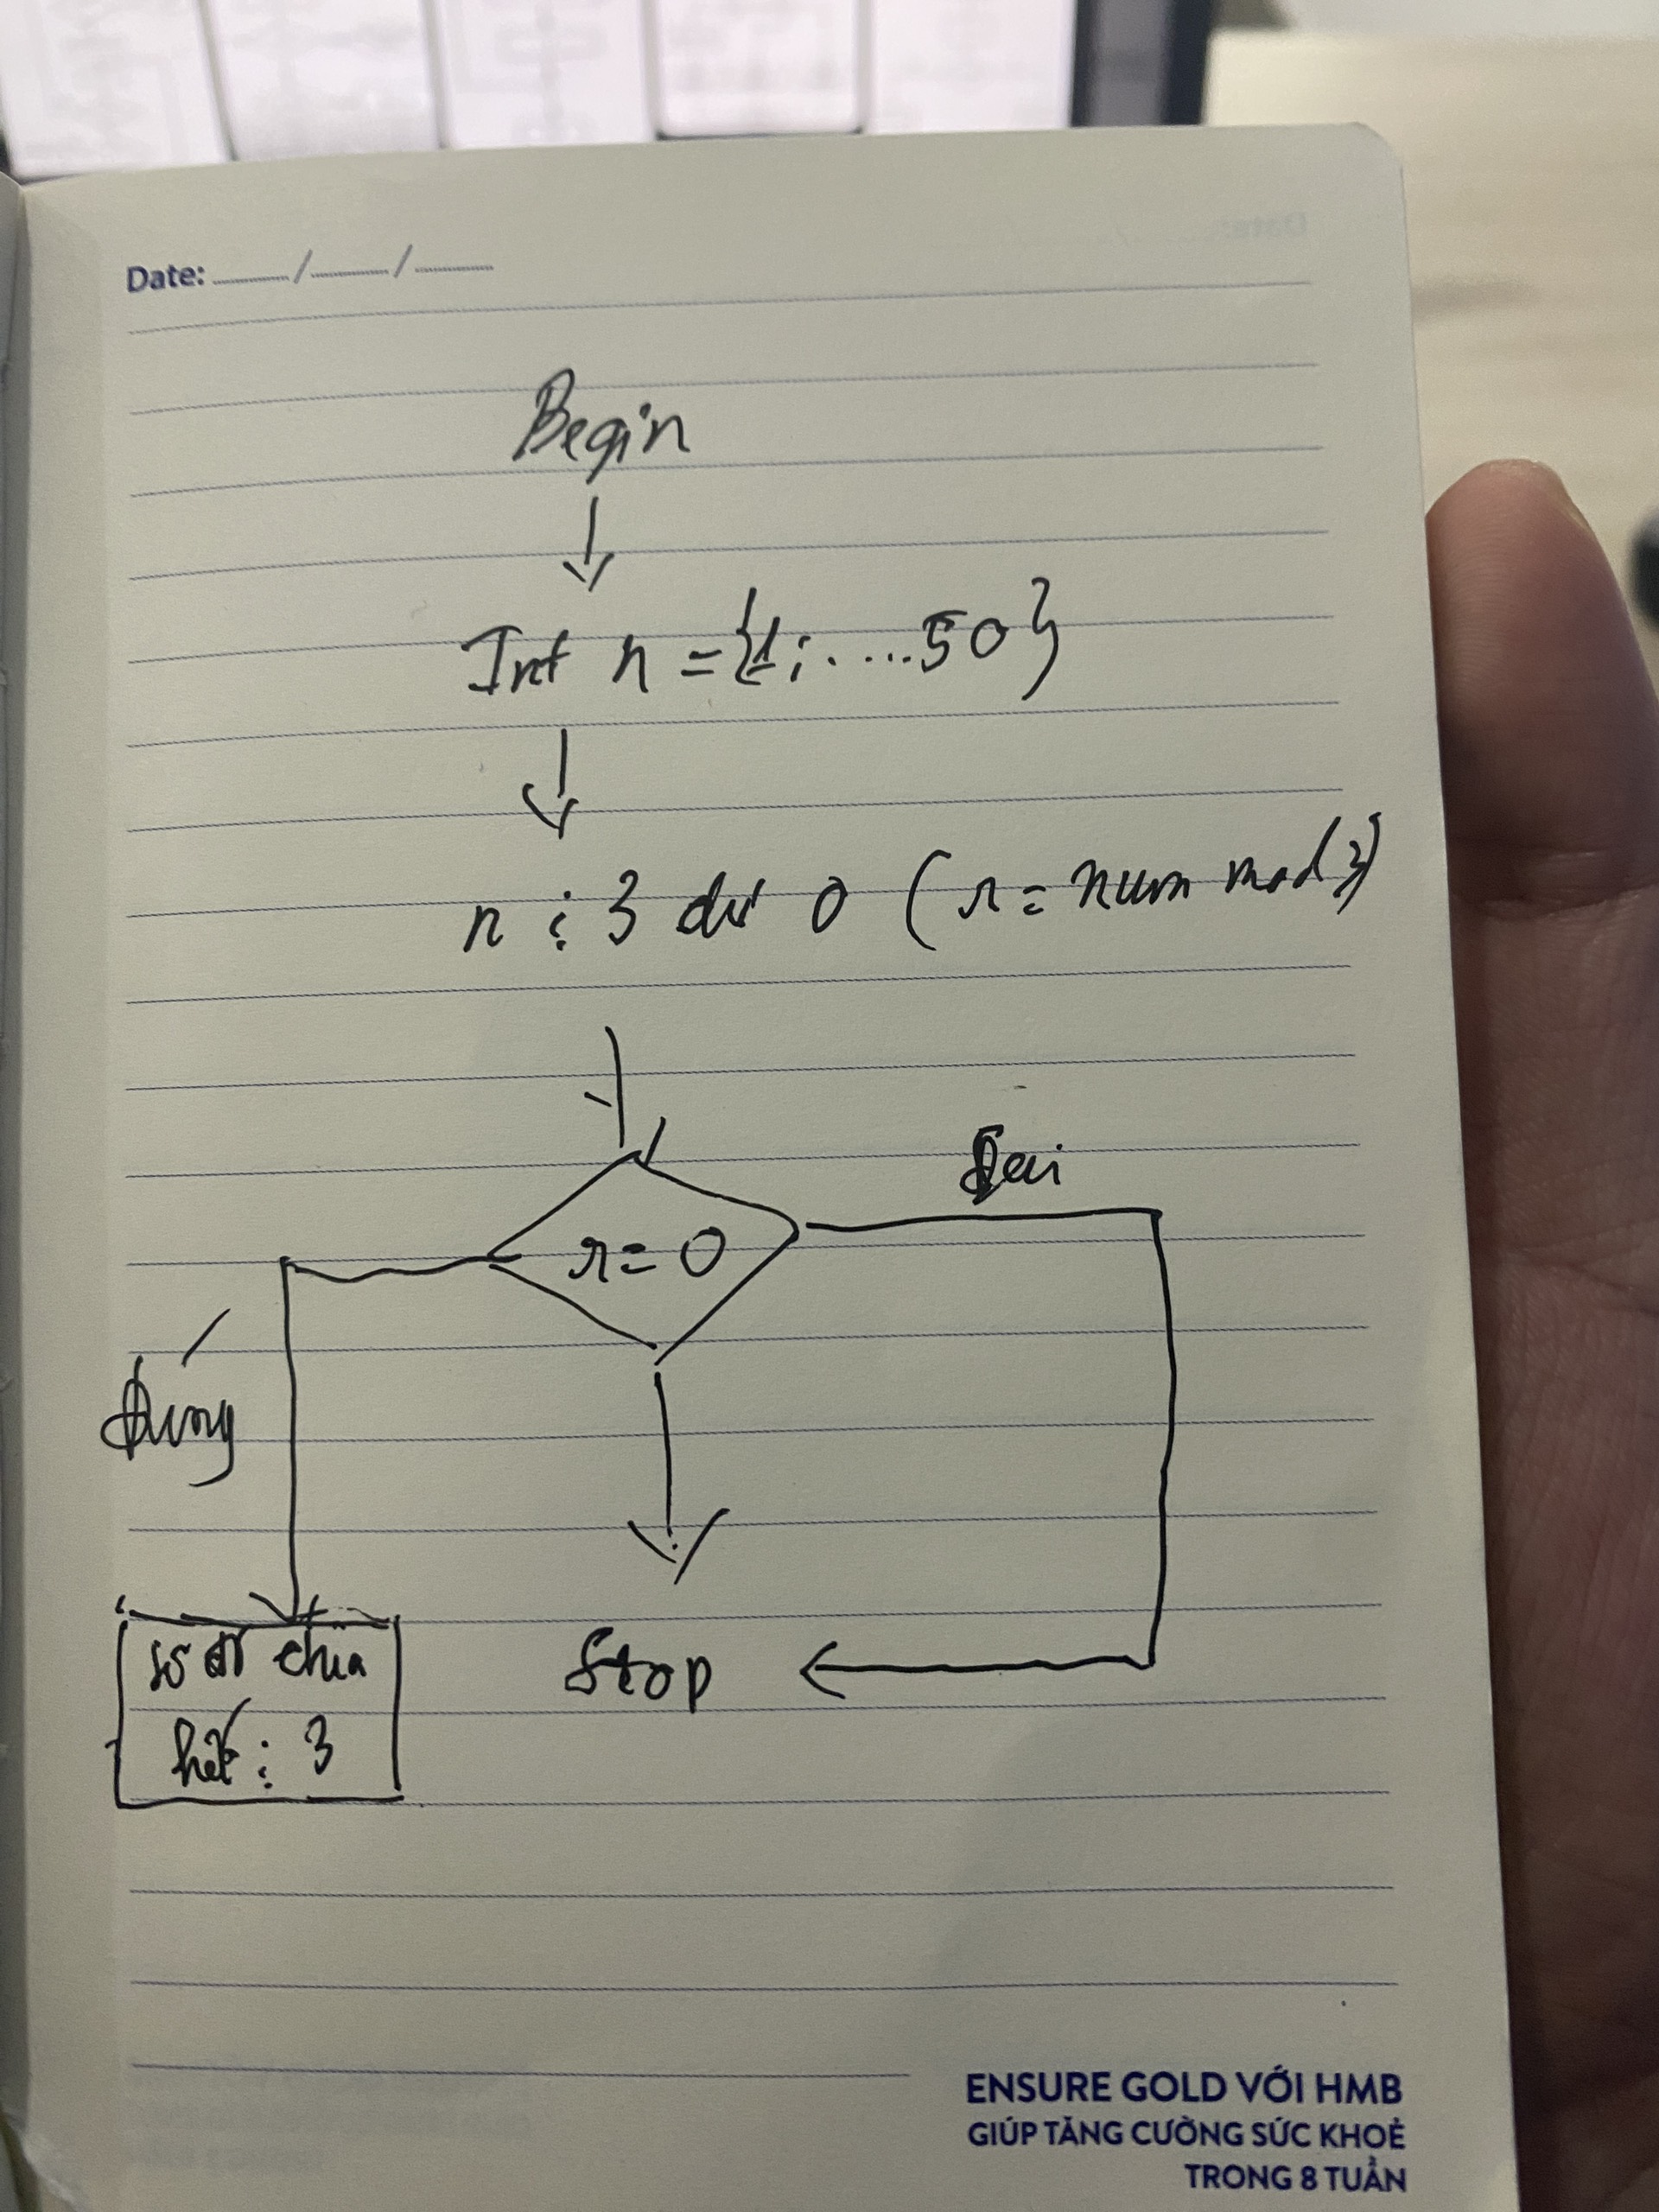 Date: ___/___/___
Begin
Int n = {1; ....50}
n : 3 dư 0 (r = num mod 3)
Sai
r = 0
Đúng
Số chia
hết : 3
Stop
ENSURE GOLD VỚI HMB
GIÚP TĂNG CƯỜNG SỨC KHOẺ
TRONG 8 TUẦN